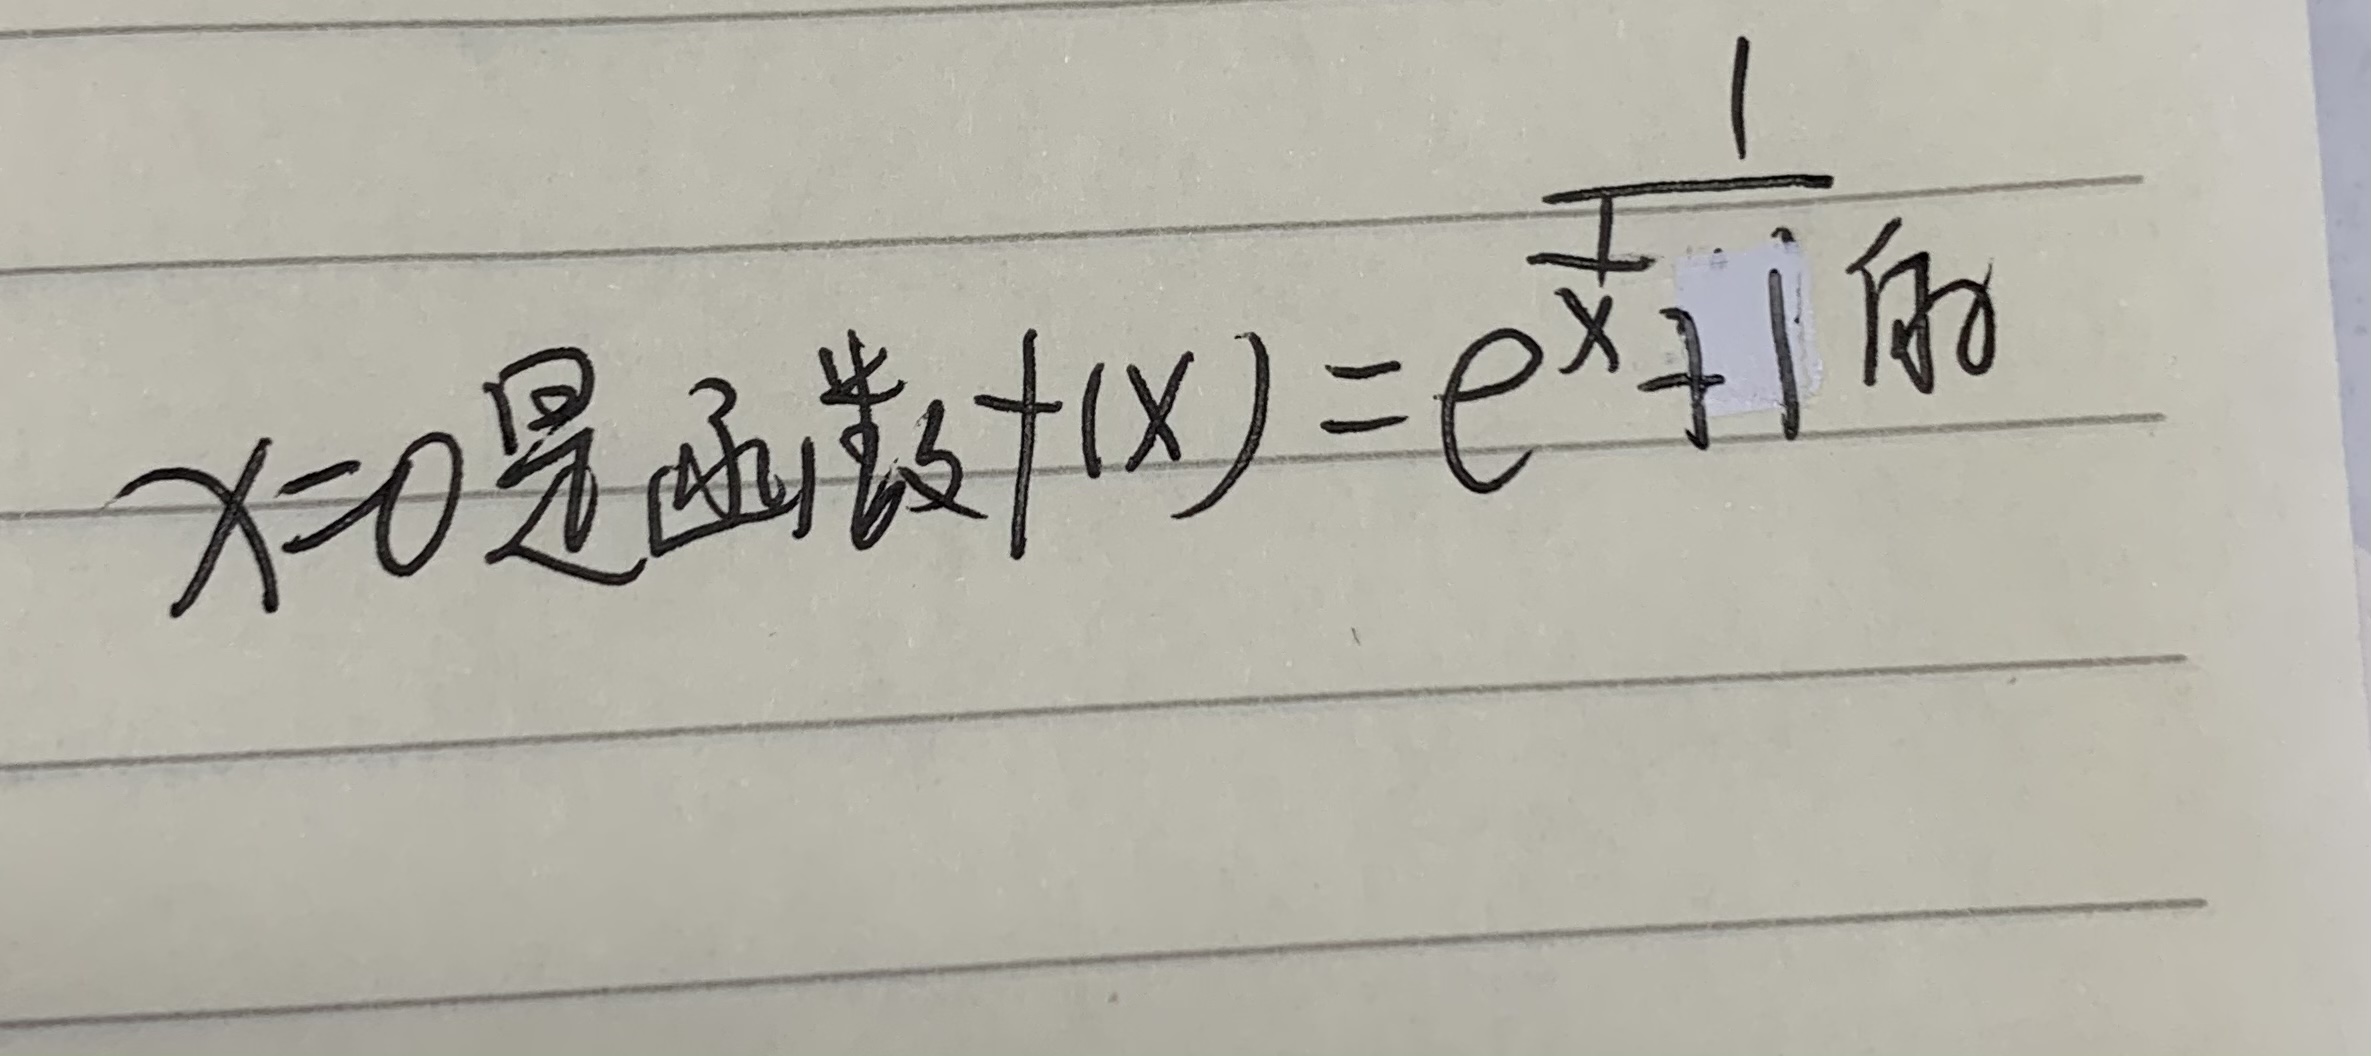 x=0是函数f(x)=\frac{1}{e^{\frac{1}{x}}+1}的